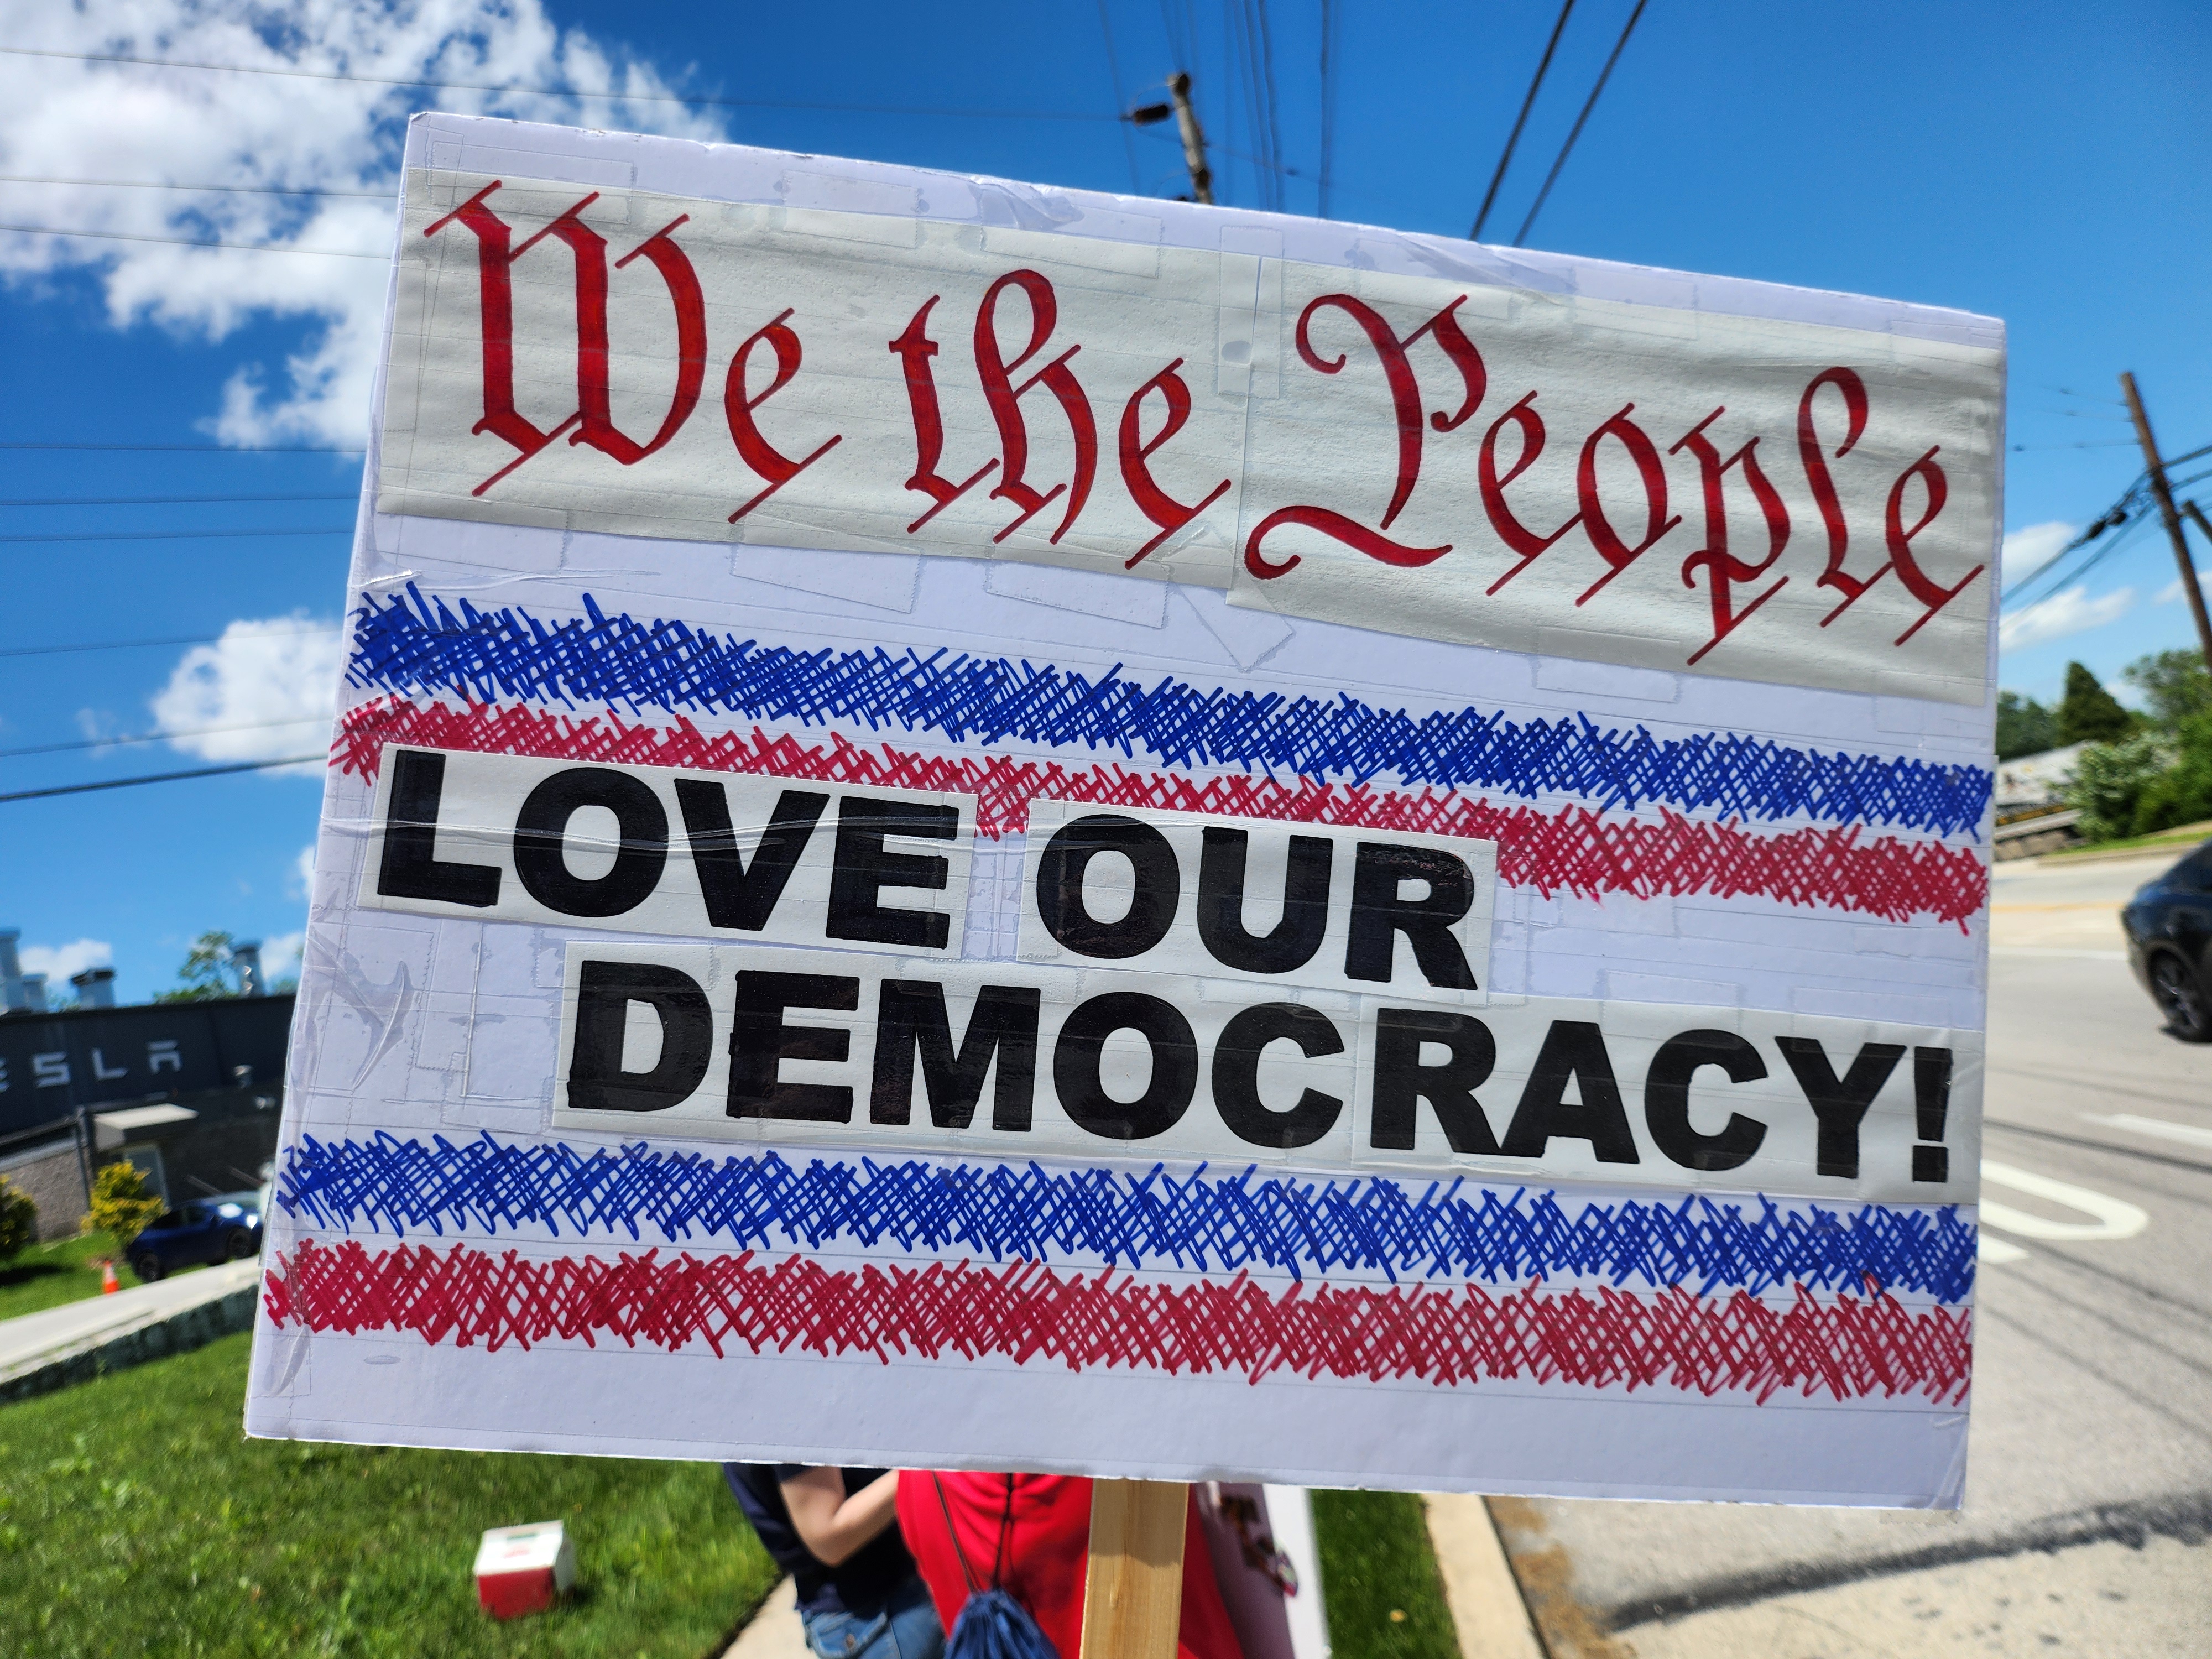 We the People
LOVE OUR
DEMOCRACY!
ESLA